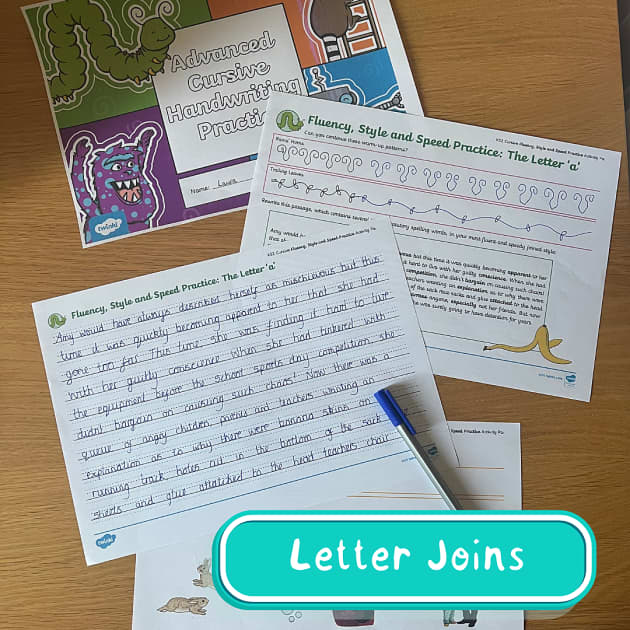 Advanced
Cursive
Handwriting
Practice
Name: Laura
twinkl
Fluency, Style and Speed Practice: The Letter 'a'
Can you continue these warm-up patterns?
Rams' Horns
Trailing Leaves
Rewrite this passage, which contains several statutory spelling words, in your most fluent and speedy joined style.
Amy would
that
apparent to her
it hard to live with her guilty conscience. When she had
competition, she didn't bargain on causing such chaos!
teachers wanting an explanation as to why there were
of the sack race sacks and glue attached to the head
anyone, especially not her friends. But now
she was surely going to have detention for years.
Fluency, Style and Speed Practice: The Letter 'a'
Amy would have always described herself as mischievous but this
time it was quickly becoming apparent to her that she had
gone too far. This time she was finding it hard to live
with her guilty conscience. When she had tinkered with
the equipment before the school sports day competition, she
didn't bargain on causing such chaos! Now there was a
queue of angry children, parents and teachers wanting an
explanation as to why there were banana skins on
running track, holes cut in the bottom of the sack
and glue attatched to the head teachers chair
twinkl
Speed Practice
Letter Joins